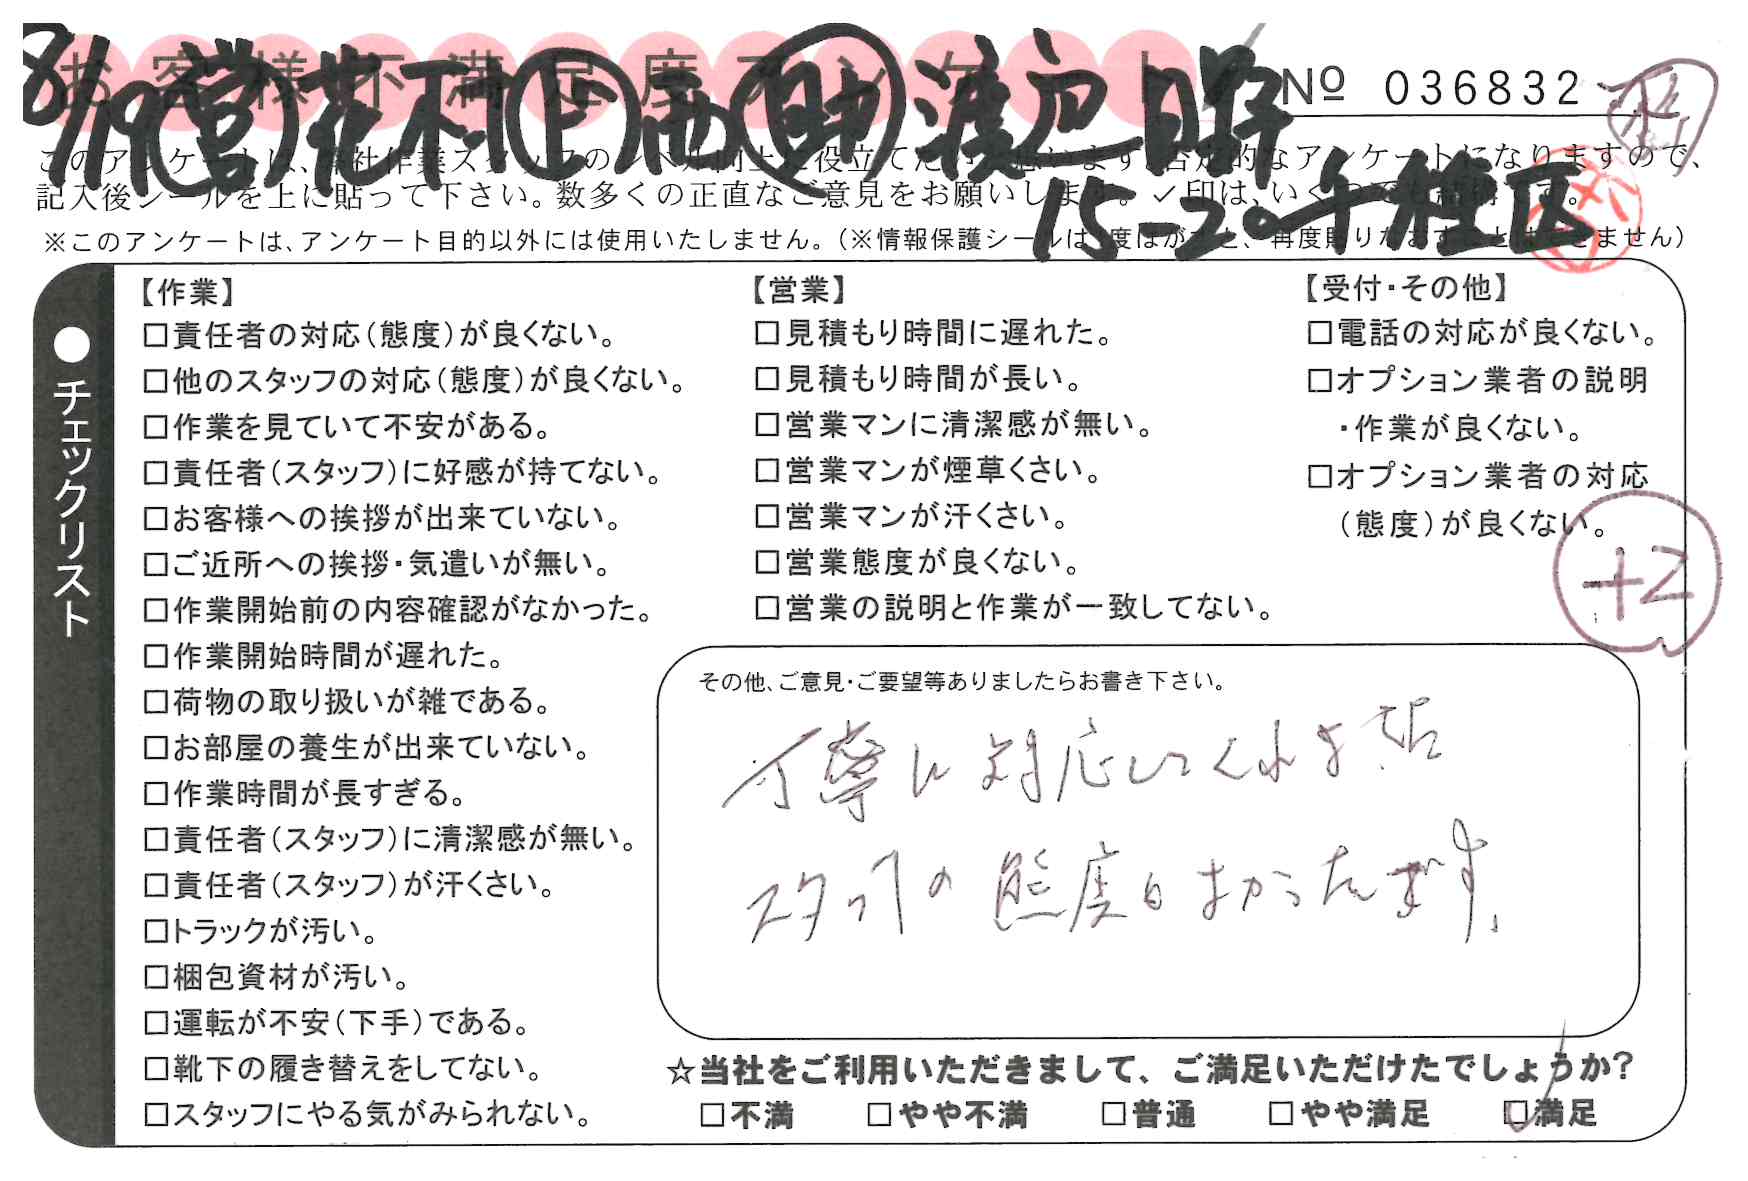 お客様不満足度アンケート
8/19 営 花村 上 西 助 渡辺 Nº 036832
15-20 千種区
このアンケートは、弊社作業スタッフのレベル向上に役立てたいと思います。否定的なアンケートになりますので、
記入後シールを上に貼って下さい。数多くの正直なご意見をお願いします。✓印は、いくつでも結構です。
※このアンケートは、アンケート目的以外には使用いたしません。(※情報保護シールは1度はがすと、再度貼りなおすことはできません)
●チェックリスト
【作業】
□責任者の対応(態度)が良くない。
□他のスタッフの対応(態度)が良くない。
□作業を見ていて不安がある。
□責任者(スタッフ)に好感が持てない。
□お客様への挨拶が出来ていない。
□ご近所への挨拶・気遣いが無い。
□作業開始前の内容確認がなかった。
□作業開始時間が遅れた。
□荷物の取り扱いが雑である。
□お部屋の養生が出来ていない。
□作業時間が長すぎる。
□責任者(スタッフ)に清潔感が無い。
□責任者(スタッフ)が汗くさい。
□トラックが汚い。
□梱包資材が汚い。
□運転が不安(下手)である。
□靴下の履き替えをしてない。
□スタッフにやる気がみられない。
【営業】
□見積もり時間に遅れた。
□見積もり時間が長い。
□営業マンに清潔感が無い。
□営業マンが煙草くさい。
□営業マンが汗くさい。
□営業態度が良くない。
□営業の説明と作業が一致してない。
【受付・その他】
□電話の対応が良くない。
□オプション業者の説明
・作業が良くない。
□オプション業者の対応
(態度)が良くない。
+2
その他、ご意見・ご要望等ありましたらお書き下さい。
丁寧に対応してくれました
スタッフの態度はよかったです。
☆当社をご利用いただきまして、ご満足いただけたでしょうか?
□不満 □やや不満 □普通 □やや満足 ☑満足